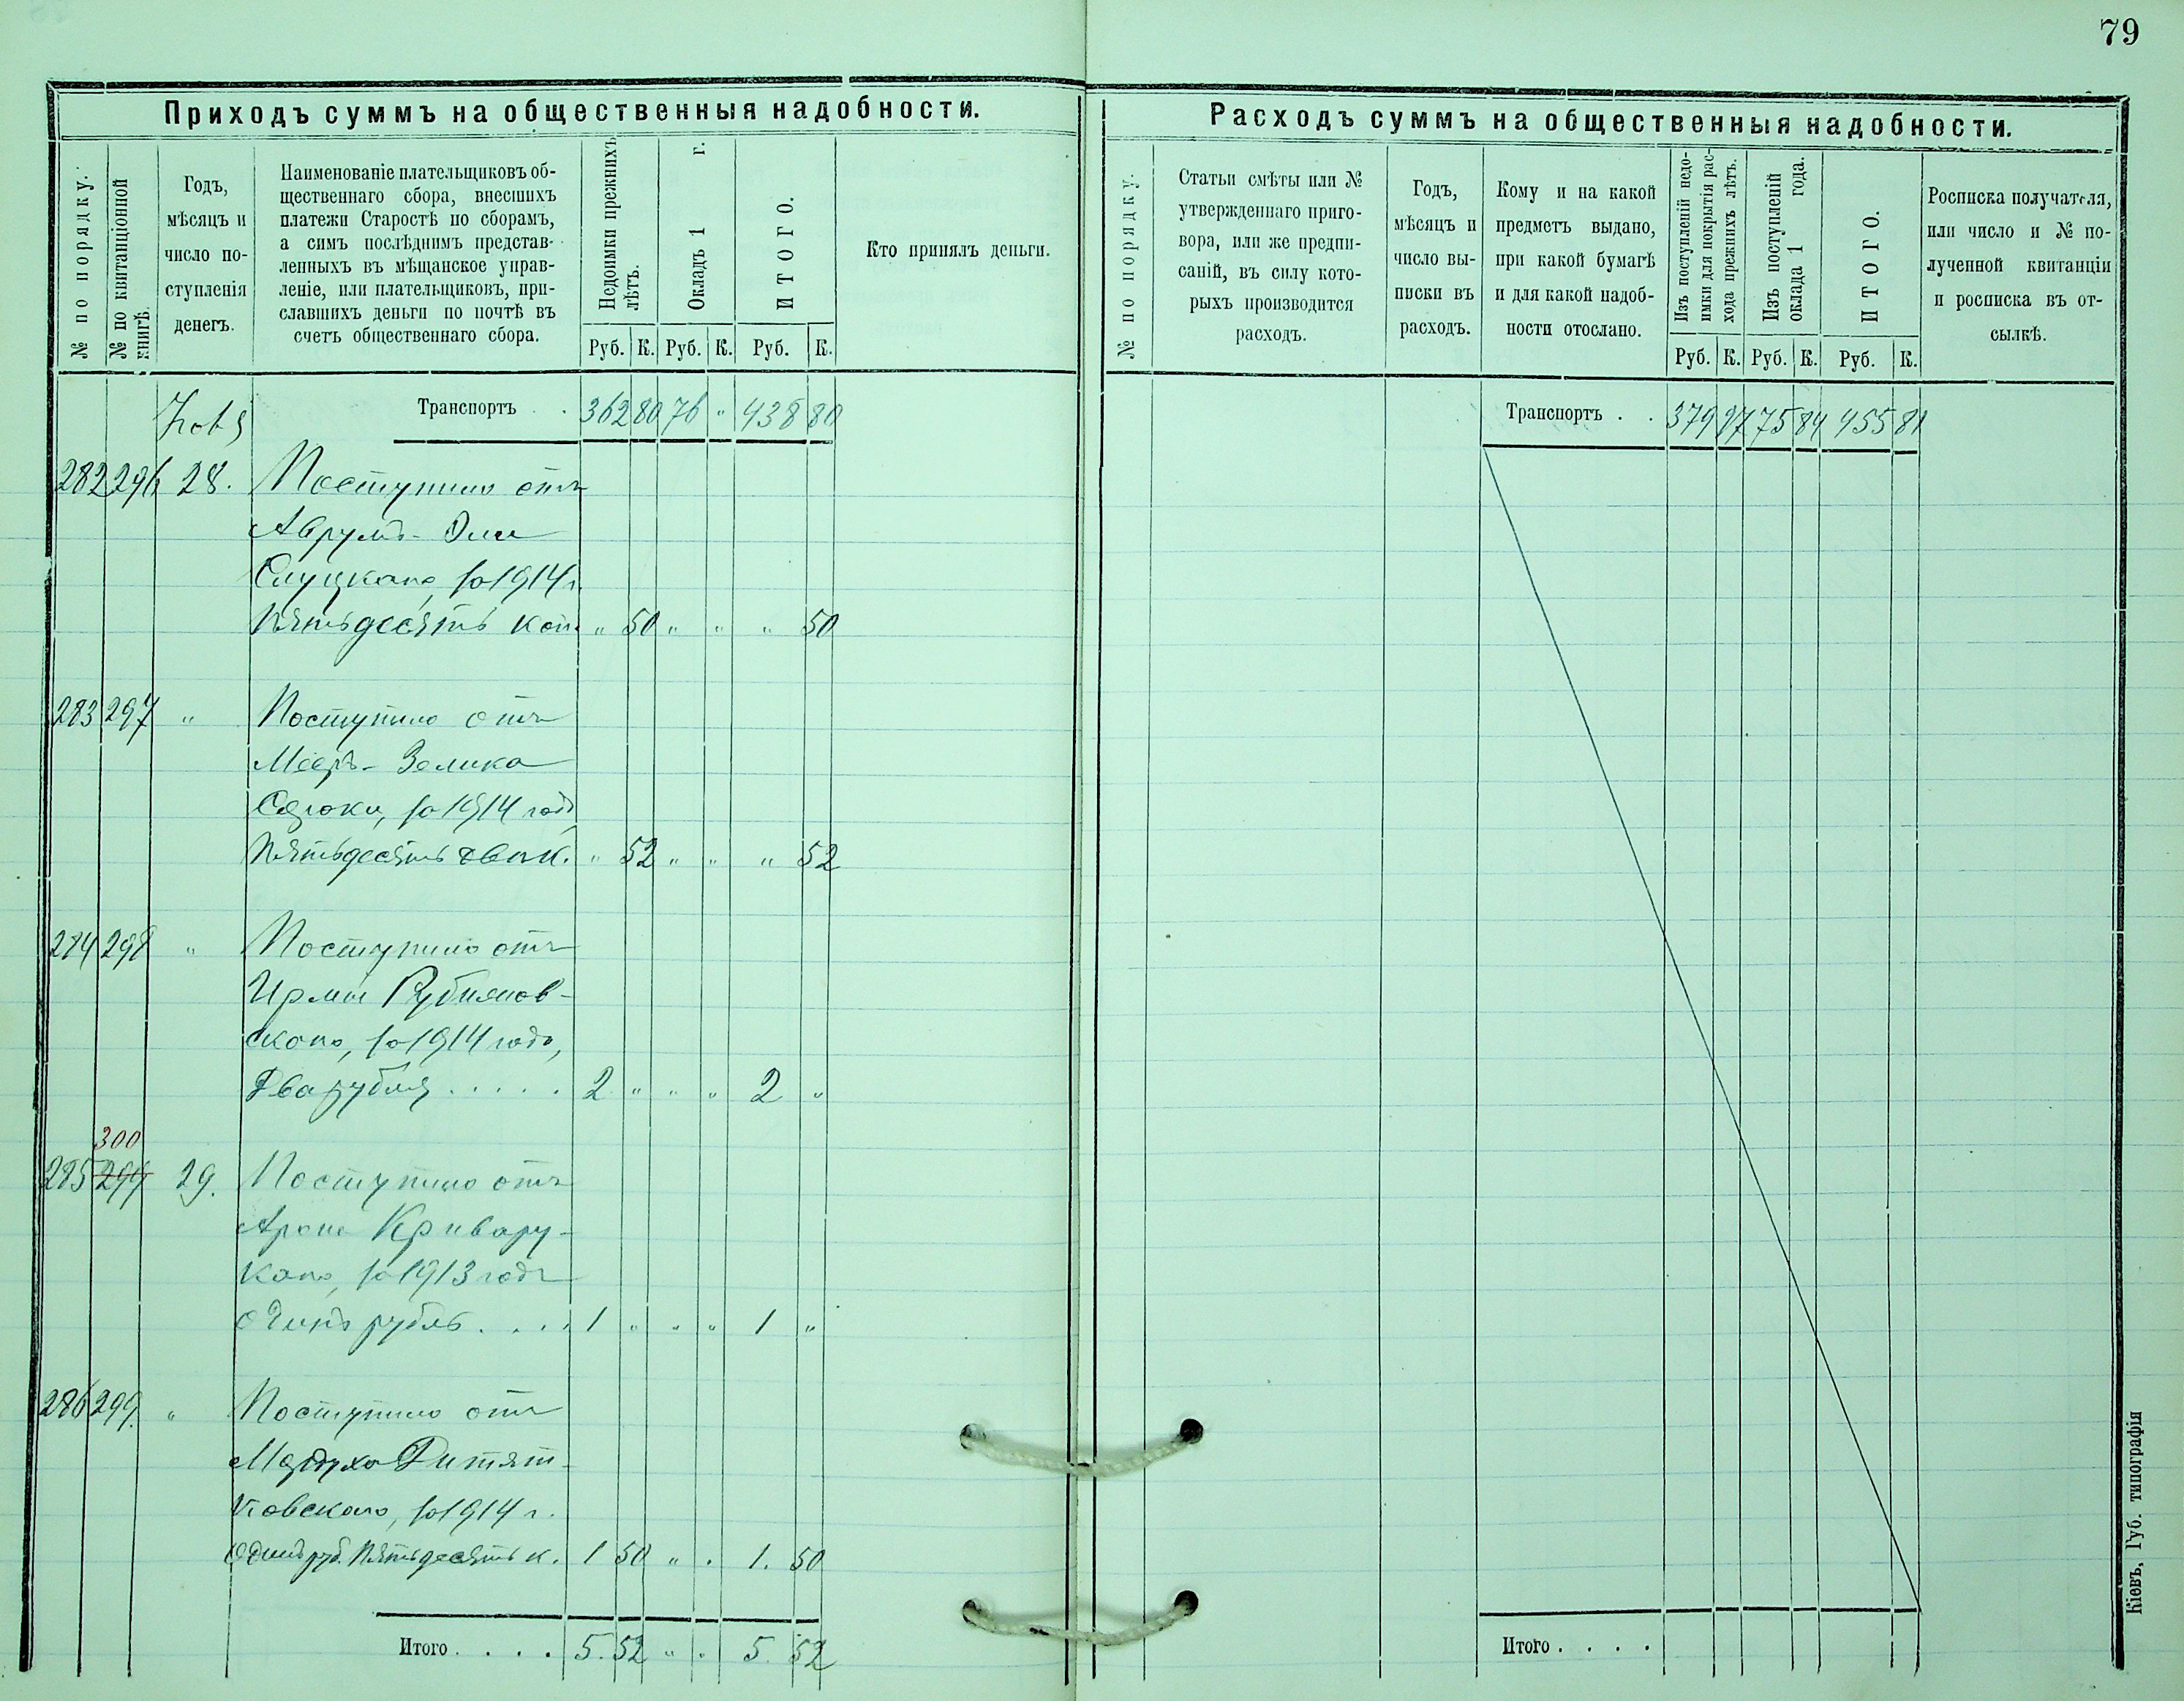 79
Приходъ суммъ на общественныя надобности.
№ по порядку.
№ по квитанціонной
книгѣ.
Годъ,
мѣсяцъ и
число по-
ступленія
денегъ.
Наименованіе плательщиковъ об-
щественнаго сбора, внесшихъ
платежи Старостѣ по сборамъ,
а симъ послѣднимъ представ-
ленныхъ въ мѣщанское управ-
леніе, или плательщиковъ, при-
славшихъ деньги по почтѣ въ
счетъ общественнаго сбора.
Недоимки прежнихъ
лѣтъ.
Окладъ 1 г.
ИТОГО.
Руб. К. Руб. К. Руб. К.
Кто принялъ деньги.
Транспортъ . . 362 80 76 " 438 80
282 296 28. Поступило отъ
Аврумъ-
Слуцкаго, за 1914 г.
Пятьдесятъ коп. " 50 " " " 50
283 297 " Поступило отъ
Мееръ-Зелика
за 1914 годъ
Пятьдесятъ два к. " 52 " " " 52
284 298 " Поступило отъ
скаго, за 1914 годъ,
Два рубля . . . . . 2 " " " 2 "
300
285 299 29. Поступило отъ
Арона Кривару-
каго, за 1913 годъ
Одинъ рубль . . . . 1 " " " 1 "
286 299. " Поступило отъ
ковскаго, за 1914 г.
Одинъ руб. Пятьдесятъ к. 1 50 " . 1. 50
Итого . . . . 5. 52 " . 5. 52
Расходъ суммъ на общественныя надобности.
№ по порядку.
Статьи смѣты или №
утвержденнаго приго-
вора, или же предпи-
саній, въ силу кото-
рыхъ производится
расходъ.
Годъ,
мѣсяцъ и
число вы-
писки въ
расходъ.
Кому и на какой
предметъ выдано,
при какой бумагѣ
и для какой надоб-
ности отослано.
Изъ поступленій недо-
имки для покрытія рас-
хода прежнихъ лѣтъ.
Изъ поступленій
оклада 1 года.
ИТОГО.
Руб. К. Руб. К. Руб. К.
Росписка получателя,
или число и № по-
лученной квитанціи
и росписка въ от-
сылкѣ.
Транспортъ . . 379 97 75 84 455 81
Итого . . . .
Кіевъ, Губ. типографія